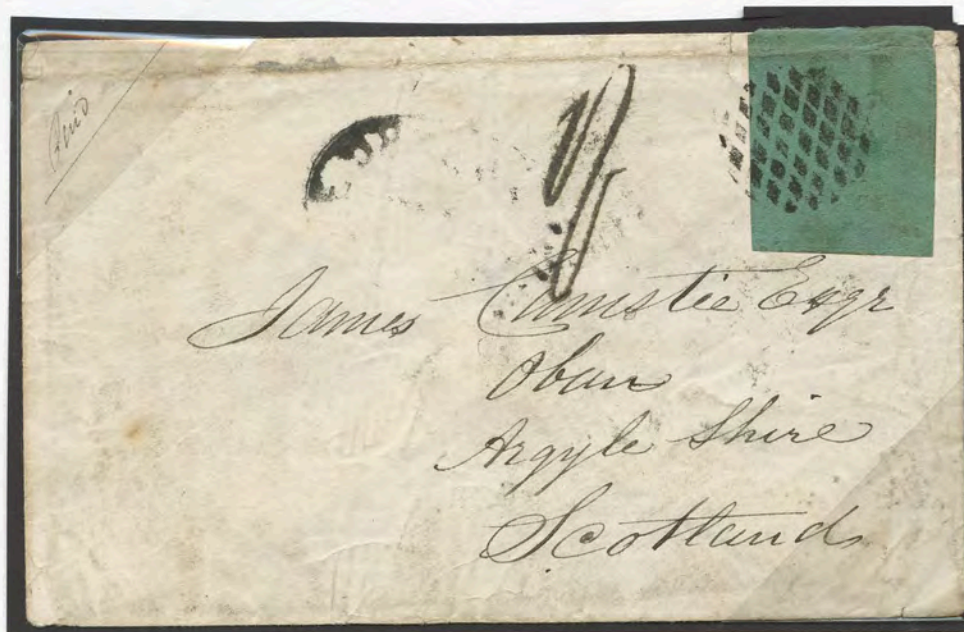 Paid
James Christie Esqr
Oban
Argyle Shire
Scotland